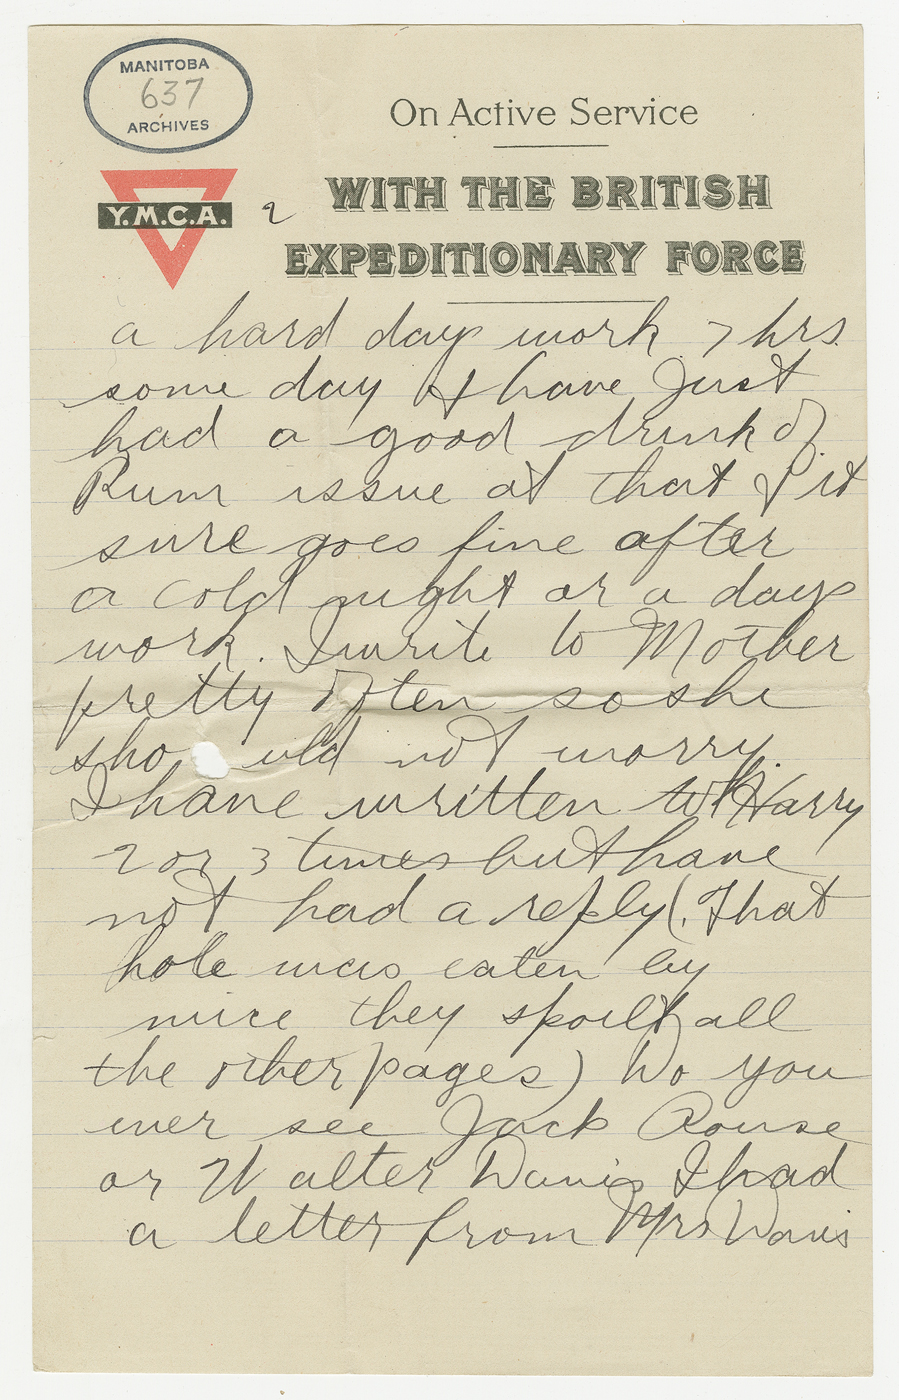 MANITOBA
637
ARCHIVES
On Active Service
WITH THE BRITISH
Y.M.C.A.
2
EXPEDITIONARY FORCE
a hard days work 7 hrs
some day I have Just
had a good drink of
Rum issue at that & it
sure goes fine after
a cold night or a days
work. I write to Mother
pretty often so she
sho uld not worry.
I have written to Harry
2 or 3 times but have
not had a reply (. That
hole was eaten by
mice they spoilt all
the other pages) Do you
ever see Jack Rouse
or Walter Davis I had
a letter from Mrs Davis